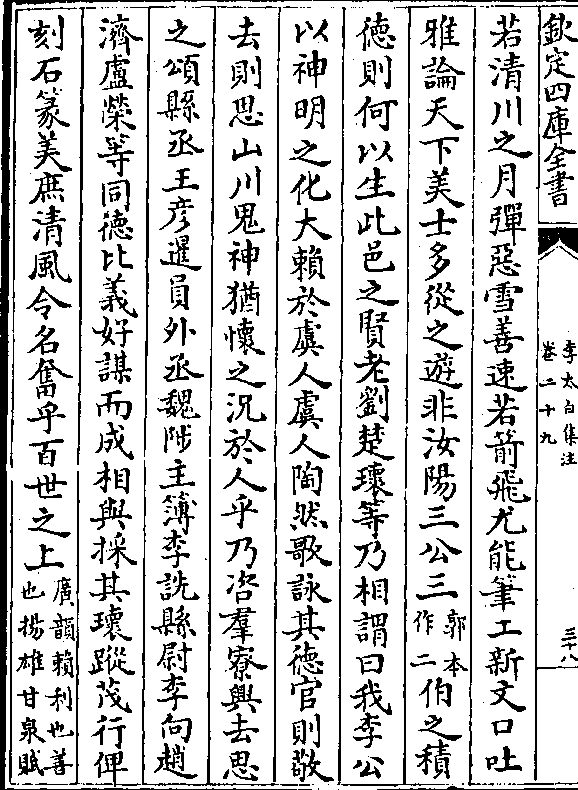 欽定四庫全書
李太白集注
卷二十九
三十八
若清川之月彈惡雪善速若箭飛尤能筆工新文口吐
雅論天下美士多從之遊非汝陽三公三郭本作二伯之積
德則何以生此邑之賢老劉楚瓌等乃相謂曰我李公
以神明之化大賴於虞人虞人陶然歌詠其德官則敬
去則思山川鬼神猶懷之況於人乎乃咨羣寮興去思
之頌縣丞王彥暹員外丞魏陟主簿李詵縣尉李向趙
濟盧榮等同德比義好謀而成相與採其瓌蹤茂行俾
刻石篆美庶清風令名奮乎百世之上廣韻賴利也善也揚雄甘泉賦